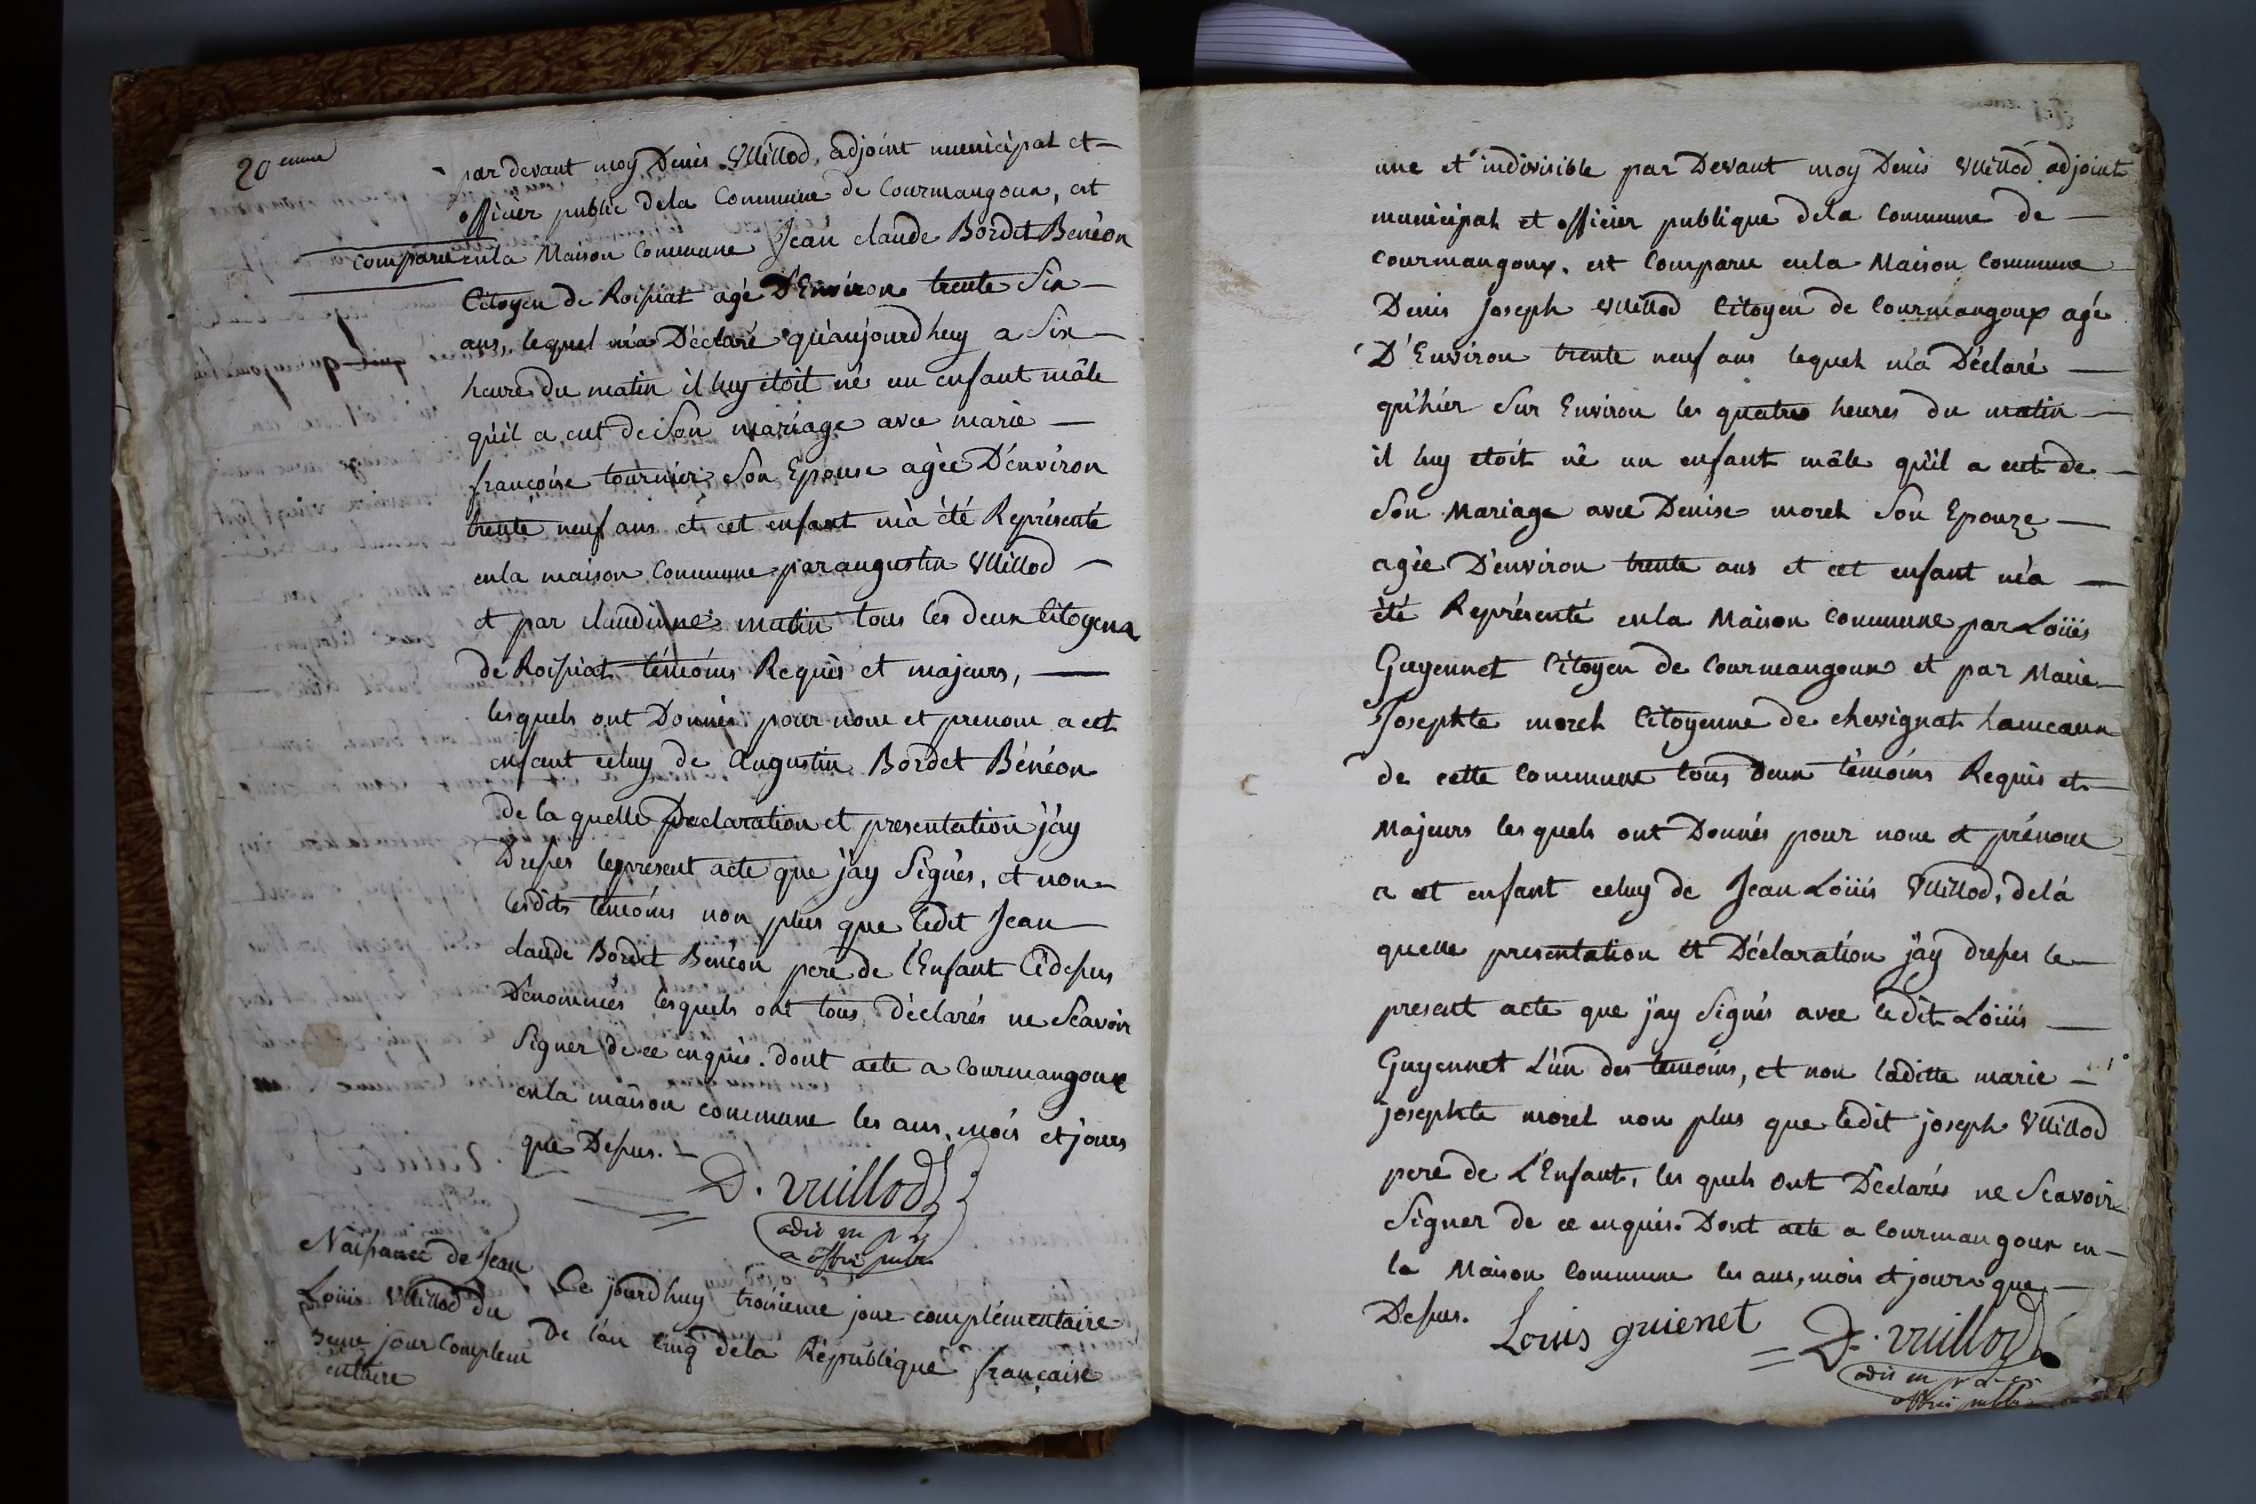 20eme
par devant moy Denis Vuillod, adjoint municipal et
officier public dela Commune de Courmangoux, est
comparu enla Maison Commune Jean claude Bordet Bénéon
Citoyen de Roissiat agé D'Environ trente Six
ans, lequel m'a Déclaré qu'aujourdhuy a Six
heure du matin il luy étoit né un enfant mâle
qu'il a eut de Son mariage avec marie
françoise tournier Son Epouse agée D'environ
trente neuf ans et cet enfant m'a été Représenté
enla maison Commune par augustin Vuillod
et par claudinne matin tous les deux Citoyens
de Roissiat témoins Requis et majeurs,
lesquels ont Donnés pour nom et prenom a cet
enfant celuy de Augustin Bordet Bénéon
de la quelle Declaration et presentation j'ay
Dressés le present acte que j'ay Signés, et non
lesdits témoins non plus que ledit Jean
claude Bordet Bénéon pere de l'Enfant Cÿdessus
Dénommés lesquels ont tous déclarés ne Scavoir
Signer de ce enquis. dont acte a Courmangoux
enla maison commune les ans, mois et jours
que Dessus.
D. vuillod
Naissance de Jean
Loüis Vuillod du
3eme jour complem
entaire
Ce jourdhuy troisieme jour complémentaire
De l'an Cinq dela République française
une et indivisible par Devant moy Denis Vuillod adjoint
municipal et officier publique dela Commune de
Courmangoux, est Comparu enla Maison Commune
Denis Joseph Vuillod Citoyen de Courmangoux agé
D'Environ trente neuf ans lequel m'a Déclaré
qu'hier Sur Environ les quatre heures du matin
il luy étoit né un enfant mâle qu'il a eut de
Son Mariage avec Denise morel Son Epouze
agée D'environ trente ans et cet enfant m'a
été Représenté enla Maison Commune par Loüis
Guyennet Citoyen de Courmangoux et par Marie
Josephte morel Citoyenne de chevignat hameaux
de cette Commune tous deux témoins Requis et
Majeurs les quels ont Donnés pour nom et prénom
a cet enfant celuy de Jean Loüis Vuillod, dela
quelle presentation et Déclaration j'ay dressés le
present acte que j'ay Signés avec ledit Loüis
Guyennet L'un des temoins, et non laditte marie
josephte morel non plus que ledit joseph Vuillod
pere de L'Enfant, les quels ont Déclarés ne Scavoir
Signer de ce enquis. Dont acte a Courmangoux en
la Maison Commune les ans, mois et jours que
Dessus.
Louis guienet D. vuillod